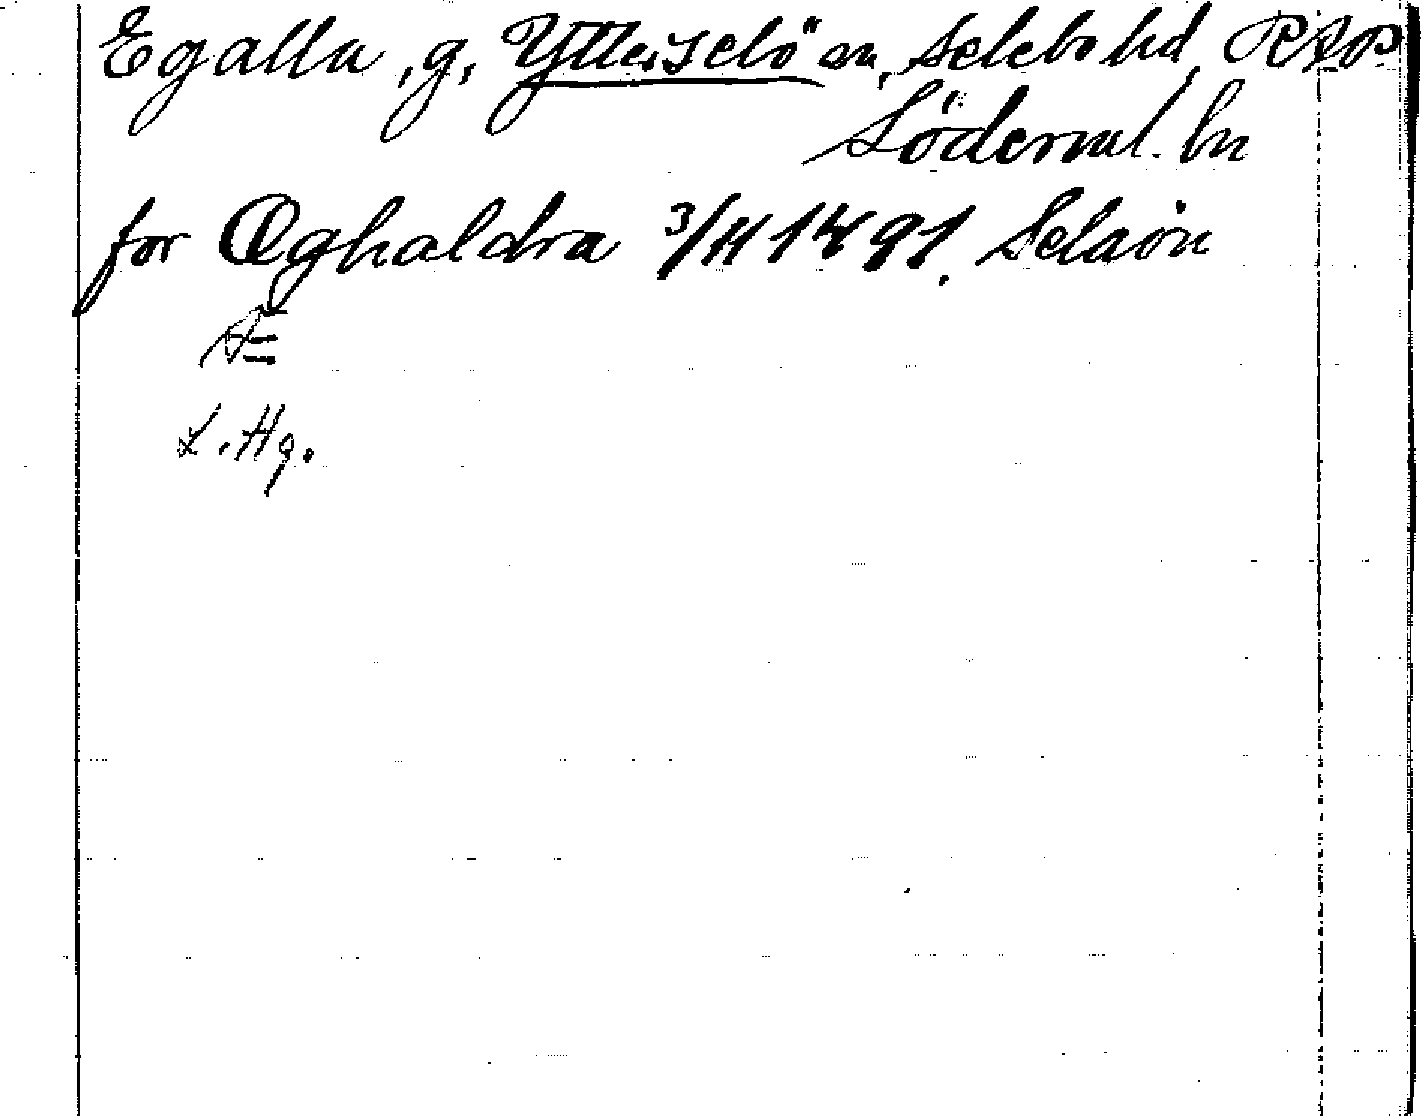 Egalla, g, Ytterselö sn, Selebo hd, RAP
Söderml. ln
for Øghaldra 3/11 1491. Selaön
L. Hg.